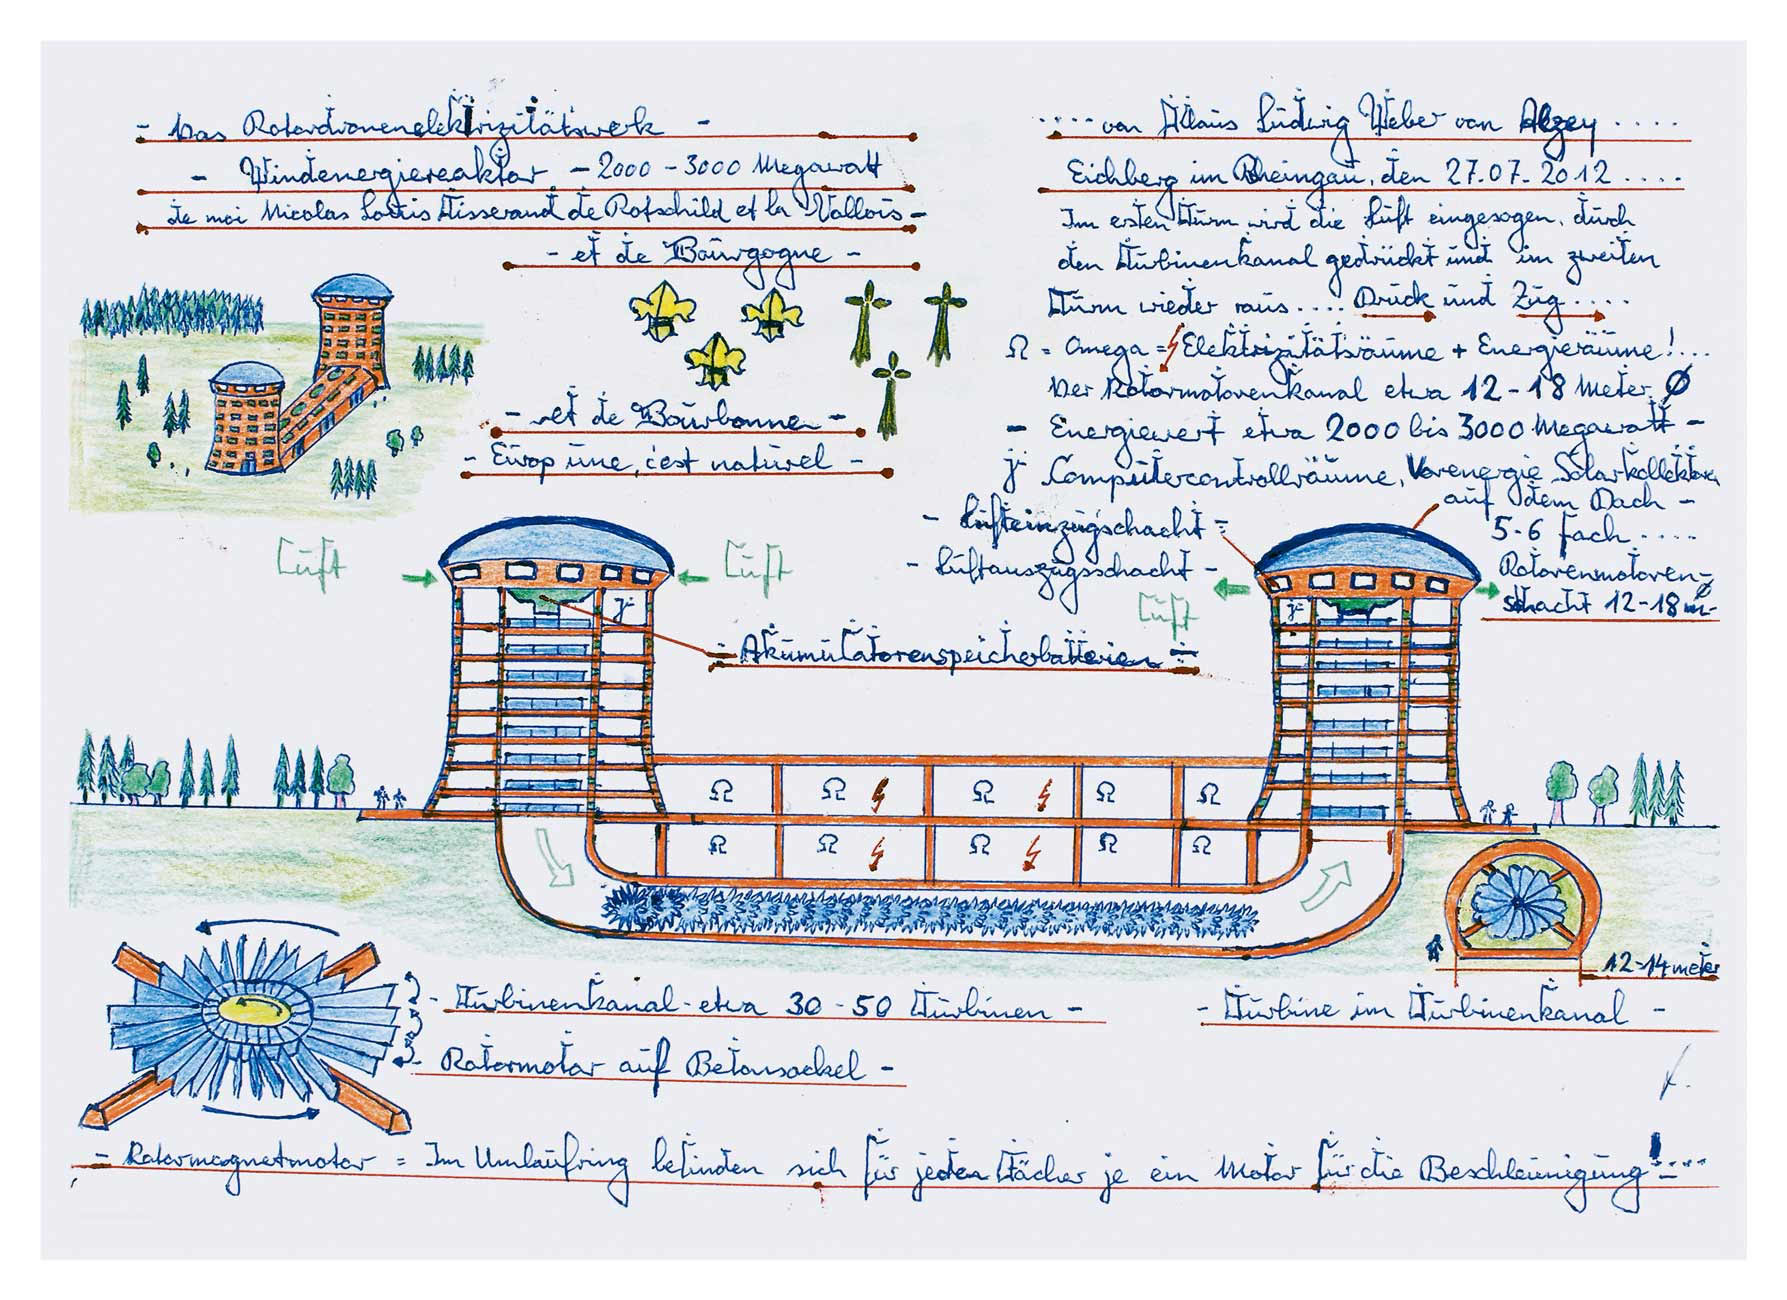 - Das Rotordronenelektrizitätswerk -
- Windenergiereaktor - 2000 - 3000 Megawatt
de moi Nicolas Louis Tisserand de Rotschild et la Vallois -
- et de Bourgogne -
- et de Bourbonne -
- Europ une, c'est naturel -
.... von Klaus Ludwig Weber von Alzey ....
Eichberg im Rheingau, den 27.07.2012 ....
Im ersten Turm wird die Luft eingesogen, durch
den Turbinenkanal gedrückt und im zweiten
Turm wieder raus .... Druck und Zug ....
Ω = Omega = Elektrizitätsräume + Energieräume! ...
Der Rotormotorenkanal etwa 12-18 Meter Ø
- Energiewert etwa 2000 bis 3000 Megawatt -
j Computercontrollräume, Vorenergie Solarkollektoren
auf dem Dach -
5-6 fach ....
Rotorenmotoren-
schacht 12-18 m Ø
- Lufteinzugschacht =
- Luftauszugsschacht -
Luft
Luft
Luft
j
j
= Akumulatorenspeicherbatterien =
Ω Ω Ω Ω Ω
Ω Ω Ω Ω Ω
12-14 meter
- Turbinenkanal - etwa 30 - 50 Turbinen -
- Turbine im Turbinenkanal -
- Rotormotor auf Betonsockel -
- Rotormagnetmotor = Im Umlaufring befinden sich für jeden Fächer je ein Motor für die Beschleunigung! ....